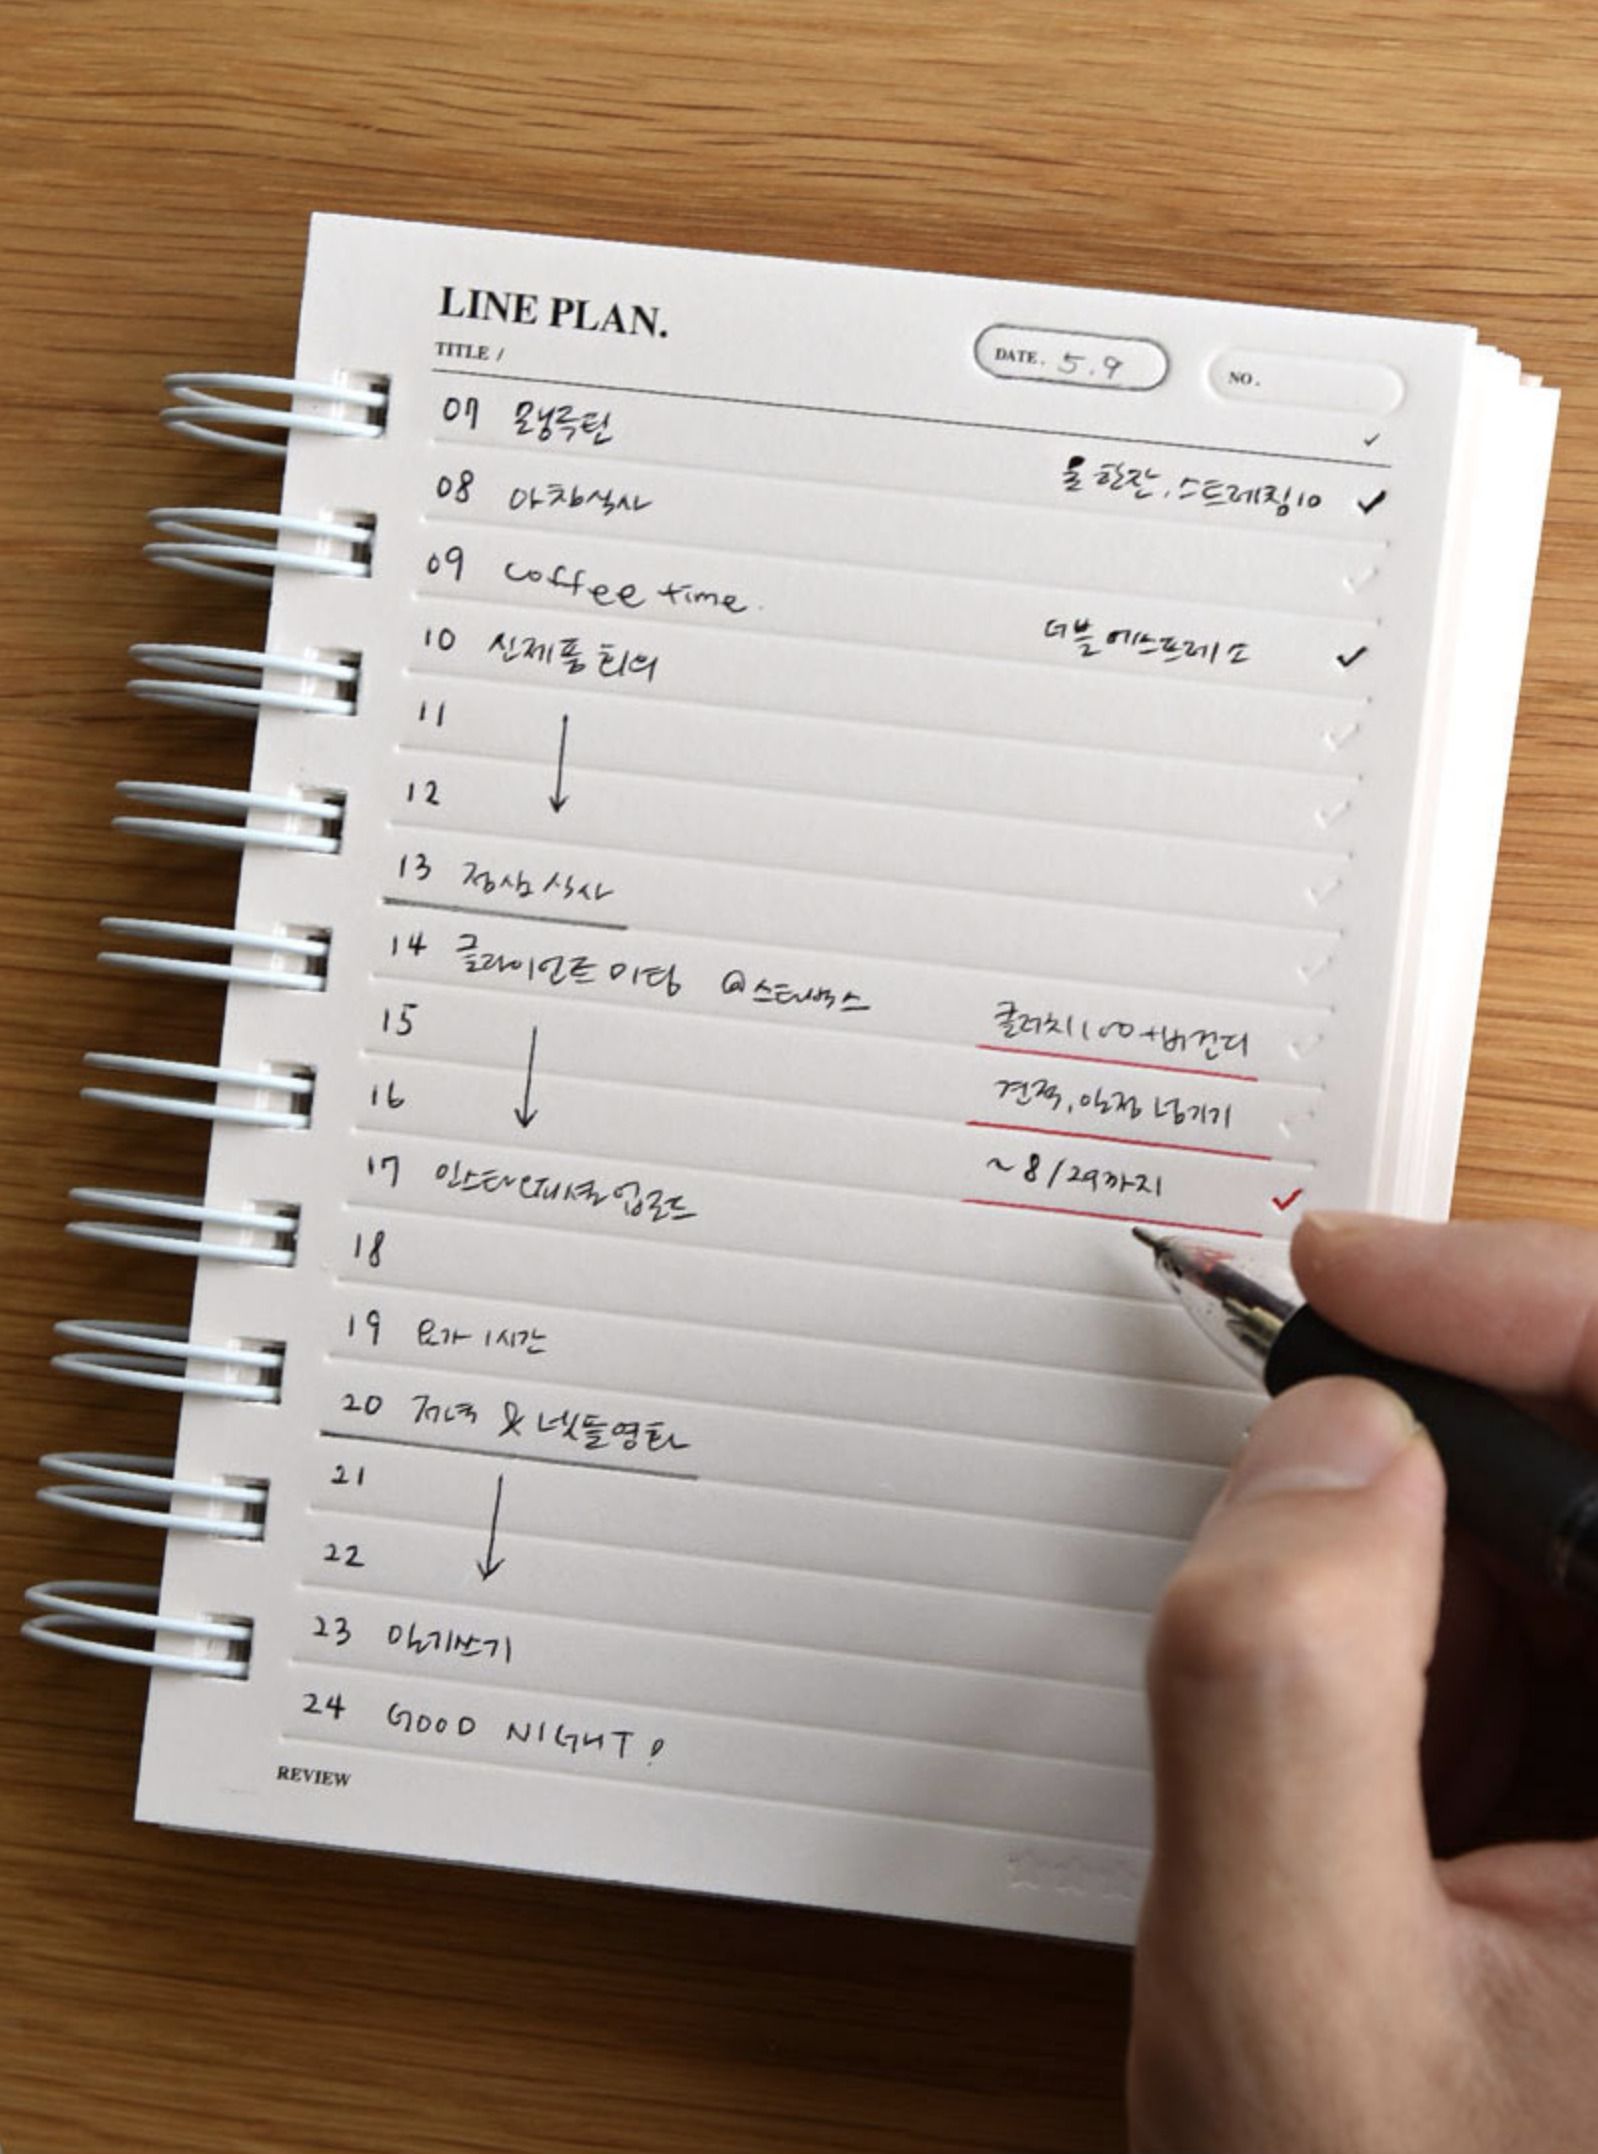 LINE PLAN.
TITLE /
DATE. 5.9
NO.
07 모닝루틴 물 한잔, 스트레칭10
08 아침식사
09 coffee time. 더블 에스프레소
10 신제품 회의
11
12
13 점심 식사
14 클라이언트 미팅 @스타벅스 클러치100+버건디
15 견적, 일정 넘기기
16 ~8/29까지
17 인스타 오피셜 업로드
18
19 요가 1시간
20 저녁 & 넷플영화
21
22
23 일기쓰기
24 GOOD NIGHT!
REVIEW